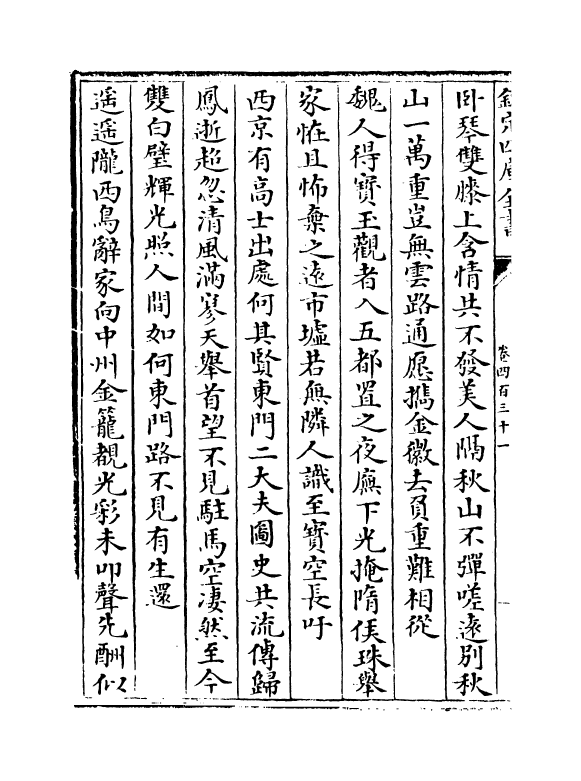 欽定四庫全書
卷四百三十一
卧琴雙膝上含情共不發美人隔秋山不彈嗟遠別秋
山一萬重豈無雲路通愿攜金徽去負重難相從
魏人得寶玉觀者入五都置之夜廡下光掩隋侯珠舉
家怪且怖棄之遠市墟若無隣人識至寶空長吁
西京有高士出處何其賢東門二大夫圖史共流傳歸
鳳逝超忽清風滿寥天舉首望不見駐馬空凄然至今
雙白璧輝光照人間如何東門路不見有生還
遥遥隴西鳥辭家向中州金籠覩光彩未叩聲先酬似